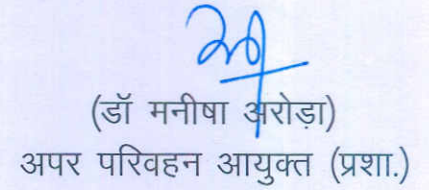 (डॉ मनीषा अरोड़ा)
अपर परिवहन आयुक्त (प्रशा.)